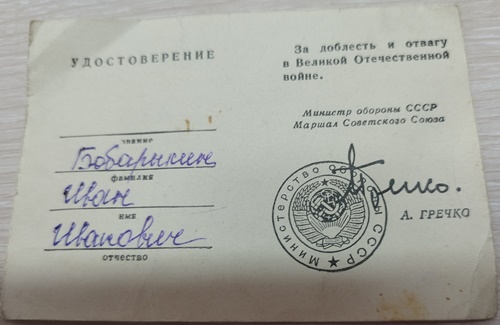 УДОСТОВЕРЕНИЕ
звание
Бобарыкин
фамилия
Иван
имя
Иванович
отчество
За доблесть и отвагу
в Великой Отечественной
войне.
Министр обороны СССР
Маршал Советского Союза
А. ГРЕЧКО
Министерство обороны СССР